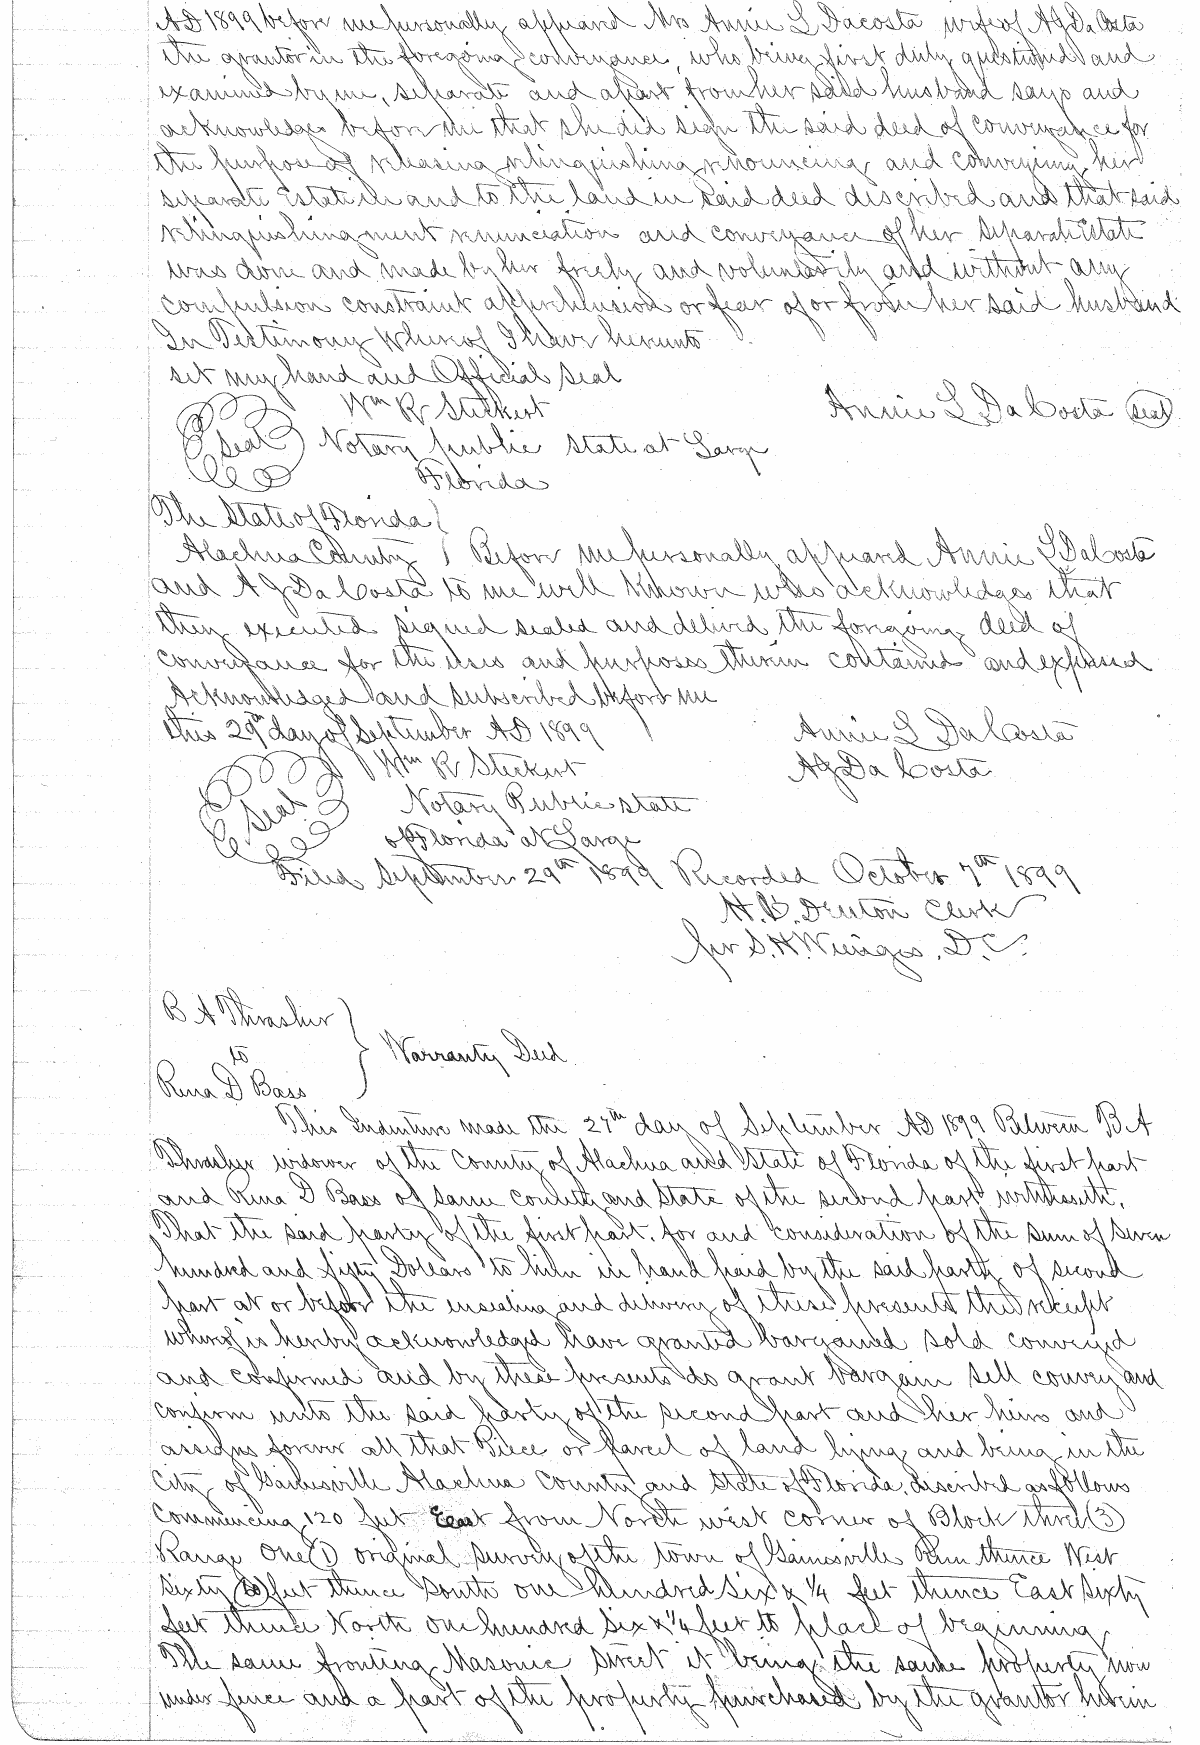 AD 1899 before me personally appeared Mrs Annie L Dacosta wife of AJ Da Costa
the grantor in the foregoing conveyance, who being first duly questioned and
examined by me, separate and apart from her said husband says and
acknowledges before me that she did sign the said deed of conveyance for
the purpose of releasing relinquishing renouncing and conveying her
separate Estate in and to the land in said deed discribed and that said
relinquishing ment renunciation and conveyance of her separate Estate
was done and made by her freely and voluntarily and without any
compulsion constraint apprehension or fear of or from her said husband
In Testimony Whereof I have hereunto
set my hand and Official Seal
Wm R Steckert
Annie L Da Costa (seal)
Seal Notary public State at Large
Florida
The State of Florida
Alachua County } Before me personally appeared Annie L DaCosta
and A J Da Costa to me well known who acknowledges that
they executed signed sealed and delivred the foregoing deed of
conveyance for the uses and purposes therein contained and expressed
Acknowledged and subscribed before me
this 29th day of September AD 1899
Annie L Da Costa
Wm R Steckert
AJ Da Costa
Seal Notary Public State
of Florida at Large
Filed September 29th 1899 Recorded October 7th 1899
H. B. Denton Clerk
per S. H. Wienges, D.C.
B A Thrasher
to } Warranty Deed
Rena D Bass
This Indenture made the 27th day of September AD 1899 Between B A
Thrasher widower of the County of Alachua and State of Florida of the first part
and Rena D Bass of same county and State of the second part witnesseth,
That the said party of the first part, for and consideration of the sum of seven
hundred and fifty Dollars to him in hand paid by the said party of second
part at or before the ensealing and delivery of these presents the receipt
whereof is hereby acknowledged have granted bargained sold conveyed
and confirmed and by these presents do grant bargain sell convey and
confirm unto the said party of the second part and her heirs and
assigns forever all that Piece or parcel of land lying and being in the
City of Gainesville Alachua County and State of Florida, discribed as follows
Commencing 120 feet East from North west corner of Block three (3)
Range One (1) original survey of the town of Gainesville Run thence West
sixty (60) feet thence South one hundred six & 1/4 feet thence East sixty
feet thence North one hundred six & 1/4 feet to place of beginning
The same fronting Masonic Street it being the same property now
under fence and a part of the property purchased by the grantor herein